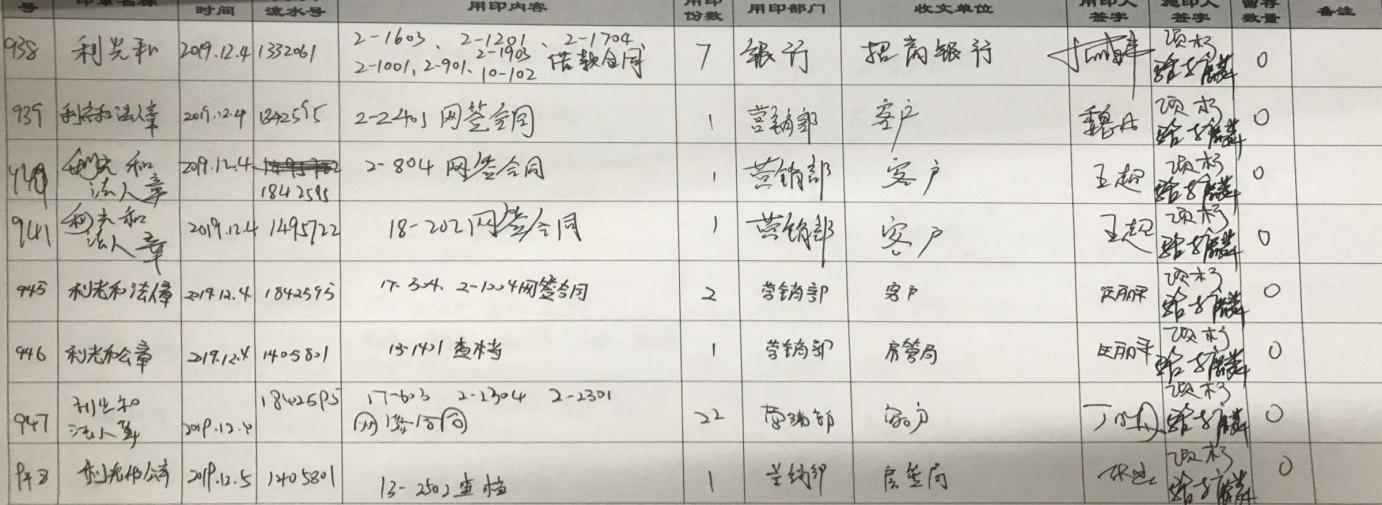 号 印章名称 时间 流水号 用印内容 用印份数 用印部门 收文单位 用印人签字 施印人签字 留存数量 备注
938 利光和 2019.12.4 1332061 2-1603、2-1201、2-1704、2-1903 2-1001、2-901、10-102 借款合同 7 银行 招商银行 0
939 利光和法人章 2019.12.4 1842595 2-2401 网签合同 1 营销部 客户 魏丹 0
利光和法人章 2019.12.4 1842595 2-804 网签合同 1 营销部 客户 王超 0
941 利光和法人章 2019.12.4 1495722 18-202 网签合同 1 营销部 客户 王超 0
945 利光和法人章 2019.12.4 1842595 17-304、2-1204网签合同 2 营销部 客户 0
946 利光和公章 2019.12.4 1405801 13-1401 查档 1 营销部 房管局 0
947 利光和法人章 2019.12.4 1842595 17-603 2-2304 2-2301 网签合同 22 营销部 客户 0
948 利光和公章 2019.12.5 1405801 13-2502 查档 1 营销部 房管局 0